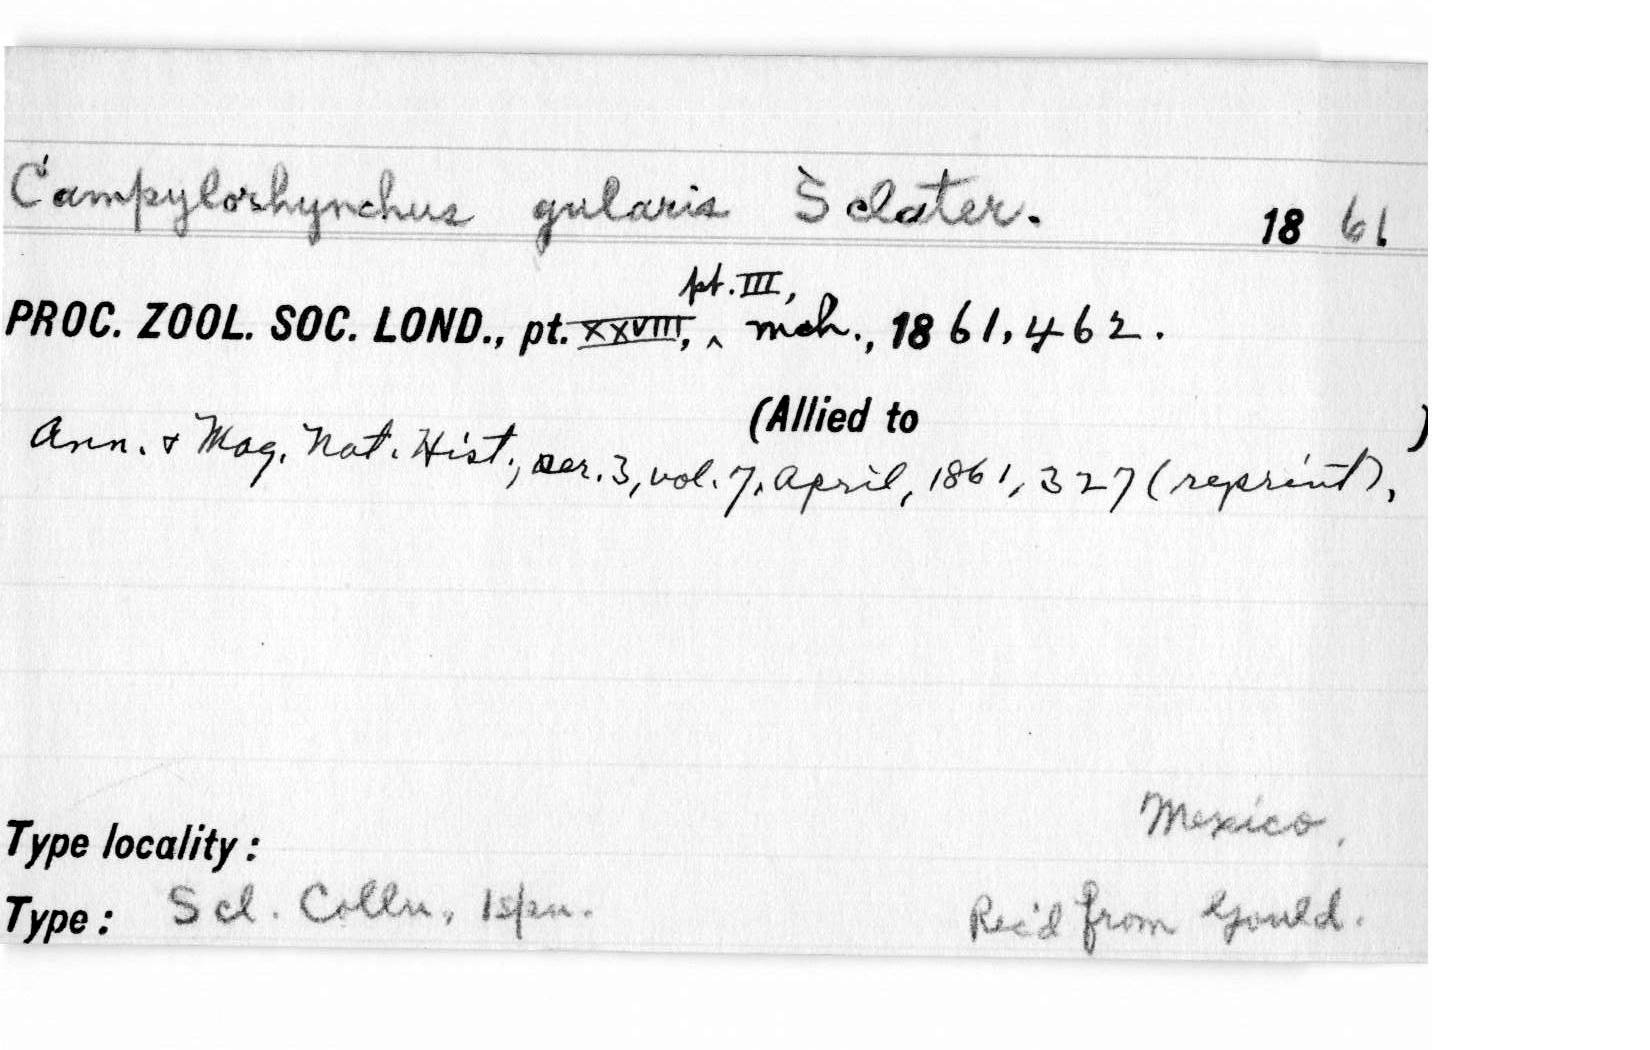 Campylorhynchus gularis Sclater. 1861.
pt. III,
PROC. ZOOL. SOC. LOND., pt. XXVIII, ^ mch., 1861, 462.
(Allied to )
Ann. & Mag. Nat. Hist., ser. 3, vol. 7, April, 1861, 327 (reprint),
Mexico.
Type locality:
Type: Scl. Colln. 1 spn. Rec'd from Gould.